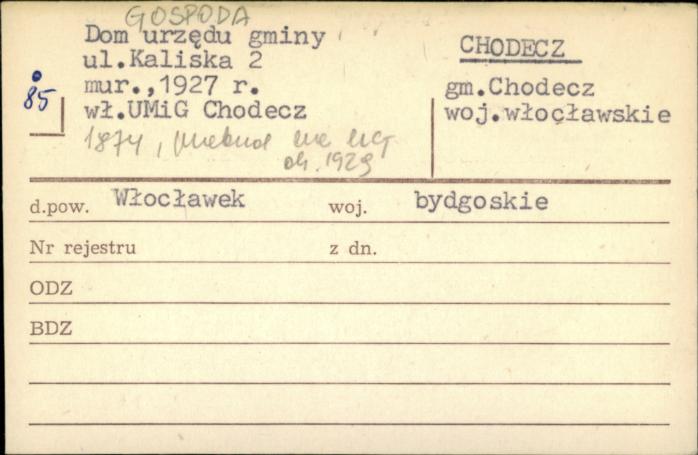 GOSPODA
Dom urzędu gminy
ul.Kaliska 2
mur.,1927 r.
wł.UMiG Chodecz
1874, przebud. na UG
ok. 1929
85
CHODECZ
gm.Chodecz
woj.włocławskie
d.pow. Włocławek woj. bydgoskie
Nr rejestru z dn.
ODZ
BDZ